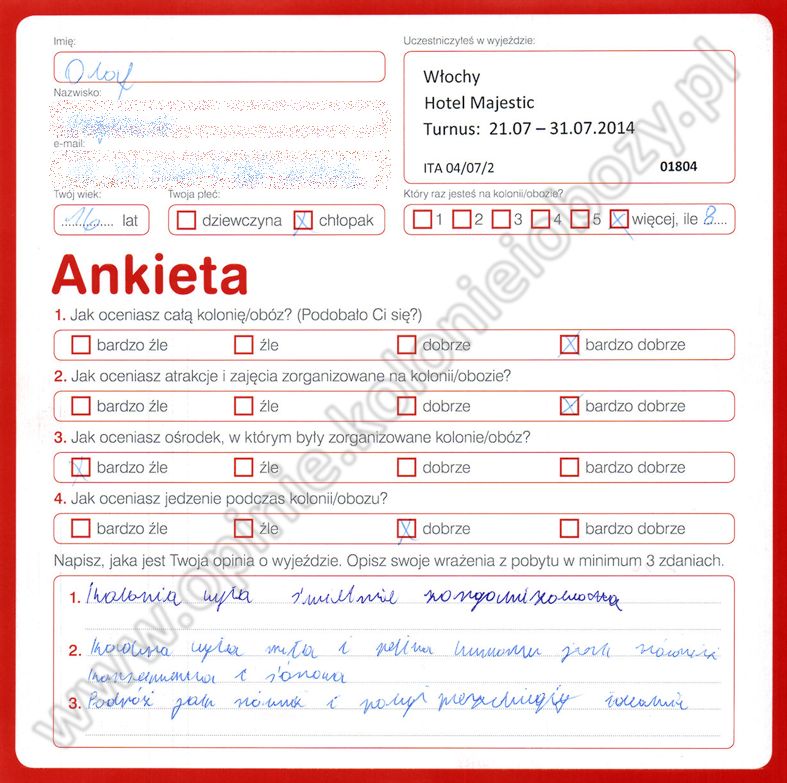 Imię:
Olaf
Uczestniczyłeś w wyjeździe:
Włochy
Hotel Majestic
Turnus: 21.07 – 31.07.2014
ITA 04/07/2 01804
Nazwisko:
e-mail:
Twój wiek: Twoja płeć: Który raz jesteś na kolonii/obozie?
16 lat dziewczyna chłopak 1 2 3 4 5 więcej, ile 8
Ankieta
1. Jak oceniasz całą kolonię/obóz? (Podobało Ci się?)
bardzo źle źle dobrze bardzo dobrze
2. Jak oceniasz atrakcje i zajęcia zorganizowane na kolonii/obozie?
bardzo źle źle dobrze bardzo dobrze
3. Jak oceniasz ośrodek, w którym były zorganizowane kolonie/obóz?
bardzo źle źle dobrze bardzo dobrze
4. Jak oceniasz jedzenie podczas kolonii/obozu?
bardzo źle źle dobrze bardzo dobrze
Napisz, jaka jest Twoja opinia o wyjeździe. Opisz swoje wrażenia z pobytu w minimum 3 zdaniach.
1. Kolonia była świetnie zorganizowana
2. Kadra była miła i pełna humoru jak również
i
3. Podróż jak również i pobyt idealnie
www.opinie.kolonieiobozy.pl